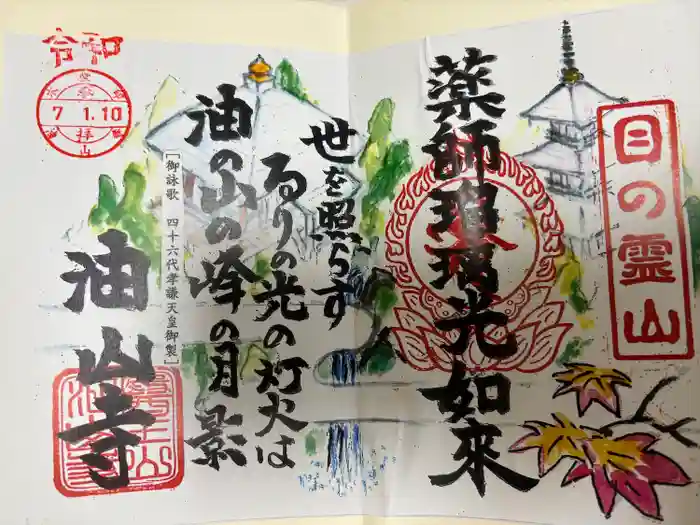 目の霊山
薬師瑠璃光如來
世を照らす
るりの光の灯火は
油の山の峰の月影
［御詠歌 四十六代孝謙天皇御製］
油山寺
令和
7 1.10